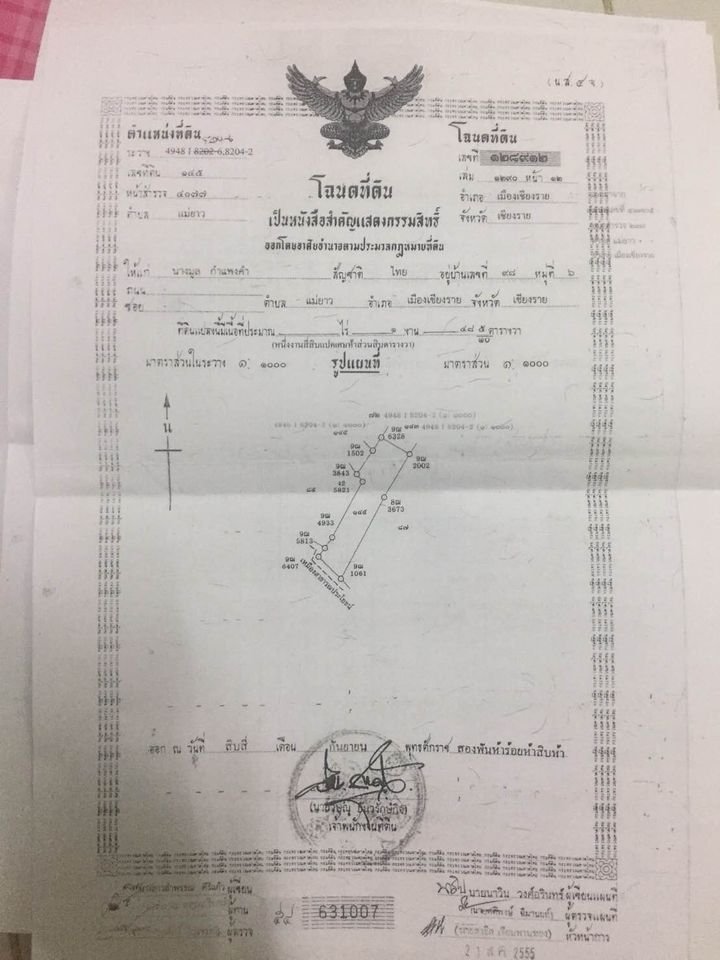 (น.ส. ๔ จ)
ตำแหน่งที่ดิน
ระวาง 4948 I 8202-6,8204-2
เลขที่ดิน ๑๔๕
หน้าสำรวจ ๔๐๗๗
ตำบล แม่ยาว
โฉนดที่ดิน
เลขที่ ๑๒๘๙๑๒
เล่ม ๑๒๙๐ หน้า ๑๒
อำเภอ เมืองเชียงราย
จังหวัด เชียงราย
โฉนดที่ดิน
เป็นหนังสือสำคัญแสดงกรรมสิทธิ์
ออกโดยอาศัยอำนาจตามประมวลกฎหมายที่ดิน
ให้แก่ นางมูล กำแพงคำ สัญชาติ ไทย อยู่บ้านเลขที่ ๙๘ หมู่ที่ ๖
ถนน
ซอย ตำบล แม่ยาว อำเภอ เมืองเชียงราย จังหวัด เชียงราย
ที่ดินแปลงนี้มีเนื้อที่ประมาณ ไร่ ๑ งาน ๔๘ ๕/๑๐ ตารางวา
(หนึ่งงานสี่สิบแปดเศษห้าส่วนสิบตารางวา)
มาตราส่วนในระวาง ๑: ๑๐๐๐ รูปแผนที่ มาตราส่วน ๑: ๑๐๐๐
น
๗๒ 4948 I 8204-2 (๑: ๑๐๐๐)
4948 I 8204-2 (๑: ๑๐๐๐) ๑๔๓ 4948 I 8204-2 (๑: ๑๐๐๐)
๑๔๔
9ฒ 6328
9ฒ 1502
9ฒ 2002
9ฒ 3843
ง2 5821
8ฒ 3673
๘๕
๑๔๕
๘๗
9ฒ 4933
9ฒ 5813
9ฒ 6407
9ฒ 1061
เหมืองสาธารณประโยชน์
ออก ณ วันที่ สิบสี่ เดือน กันยายน พุทธศักราช สองพันห้าร้อยห้าสิบห้า
เจ้าพนักงานที่ดิน
ผู้เขียน
ผู้ทาน
ผู้ตรวจ
631007
นายนาวิน วงศ์อรินทร์ ผู้เขียนแผนที่
ผู้ตรวจแผนที่
หัวหน้าการ
2555